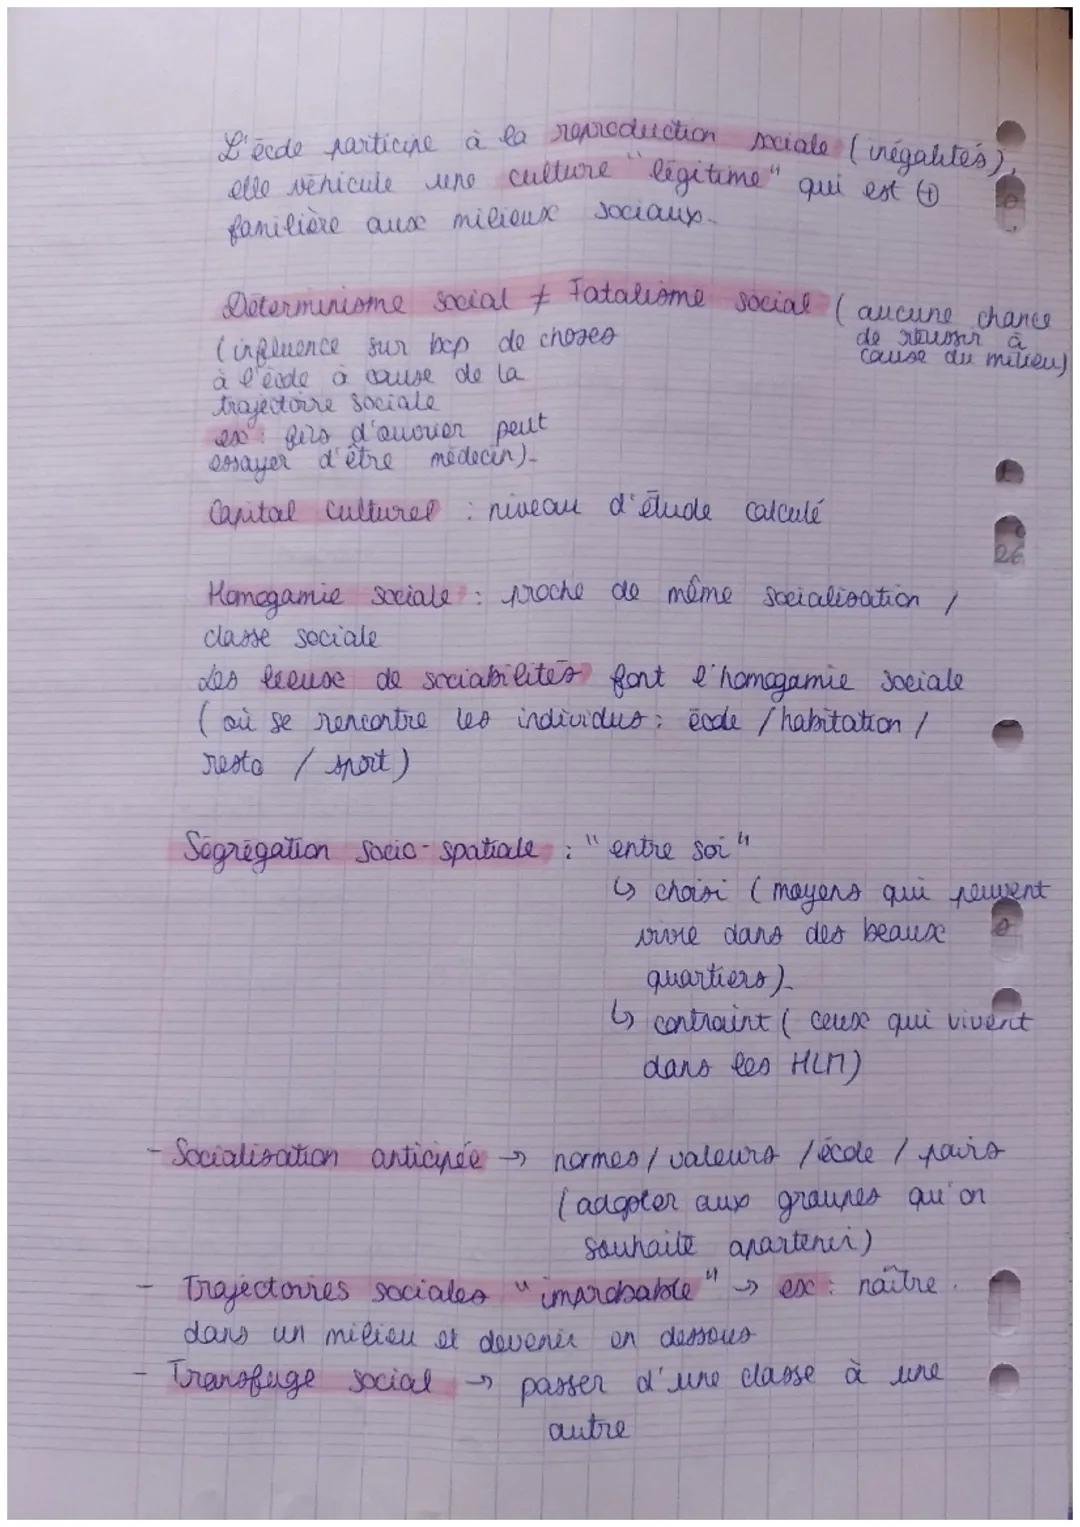 L'école participe à la reproduction sociale (inégalités),
elle véhicule une culture "légitime" qui est ⊕
familière aux milieux sociaux.
Déterminisme social ≠ Fatalisme social (aucune chance
de réussir à
cause du milieu)
(influence sur bcp de choses
à l'école à cause de la
trajectoire sociale
ex : fils d'ouvrier peut
essayer d'être médecin).
Capital culturel : niveau d'étude calculé
Homogamie sociale : proche de même socialisation /
classe sociale
Les lieux de sociabilités font l'homogamie sociale
(où se rencontre les individus : école / habitation /
resto / sport)
Ségrégation socio-spatiale : "entre soi"
↳ choisi (moyens qui peuvent
vivre dans des beaux
quartiers).
↳ contraint (ceux qui vivent
dans les HLM)
- Socialisation anticipée → normes / valeurs / école / pairs
(adapter aux groupes qu'on
souhaite apartenir)
- Trajectoires sociales "improbable" → ex : naître
dans un milieu et devenir en dessous
- Transfuge social → passer d'une classe à une
autre